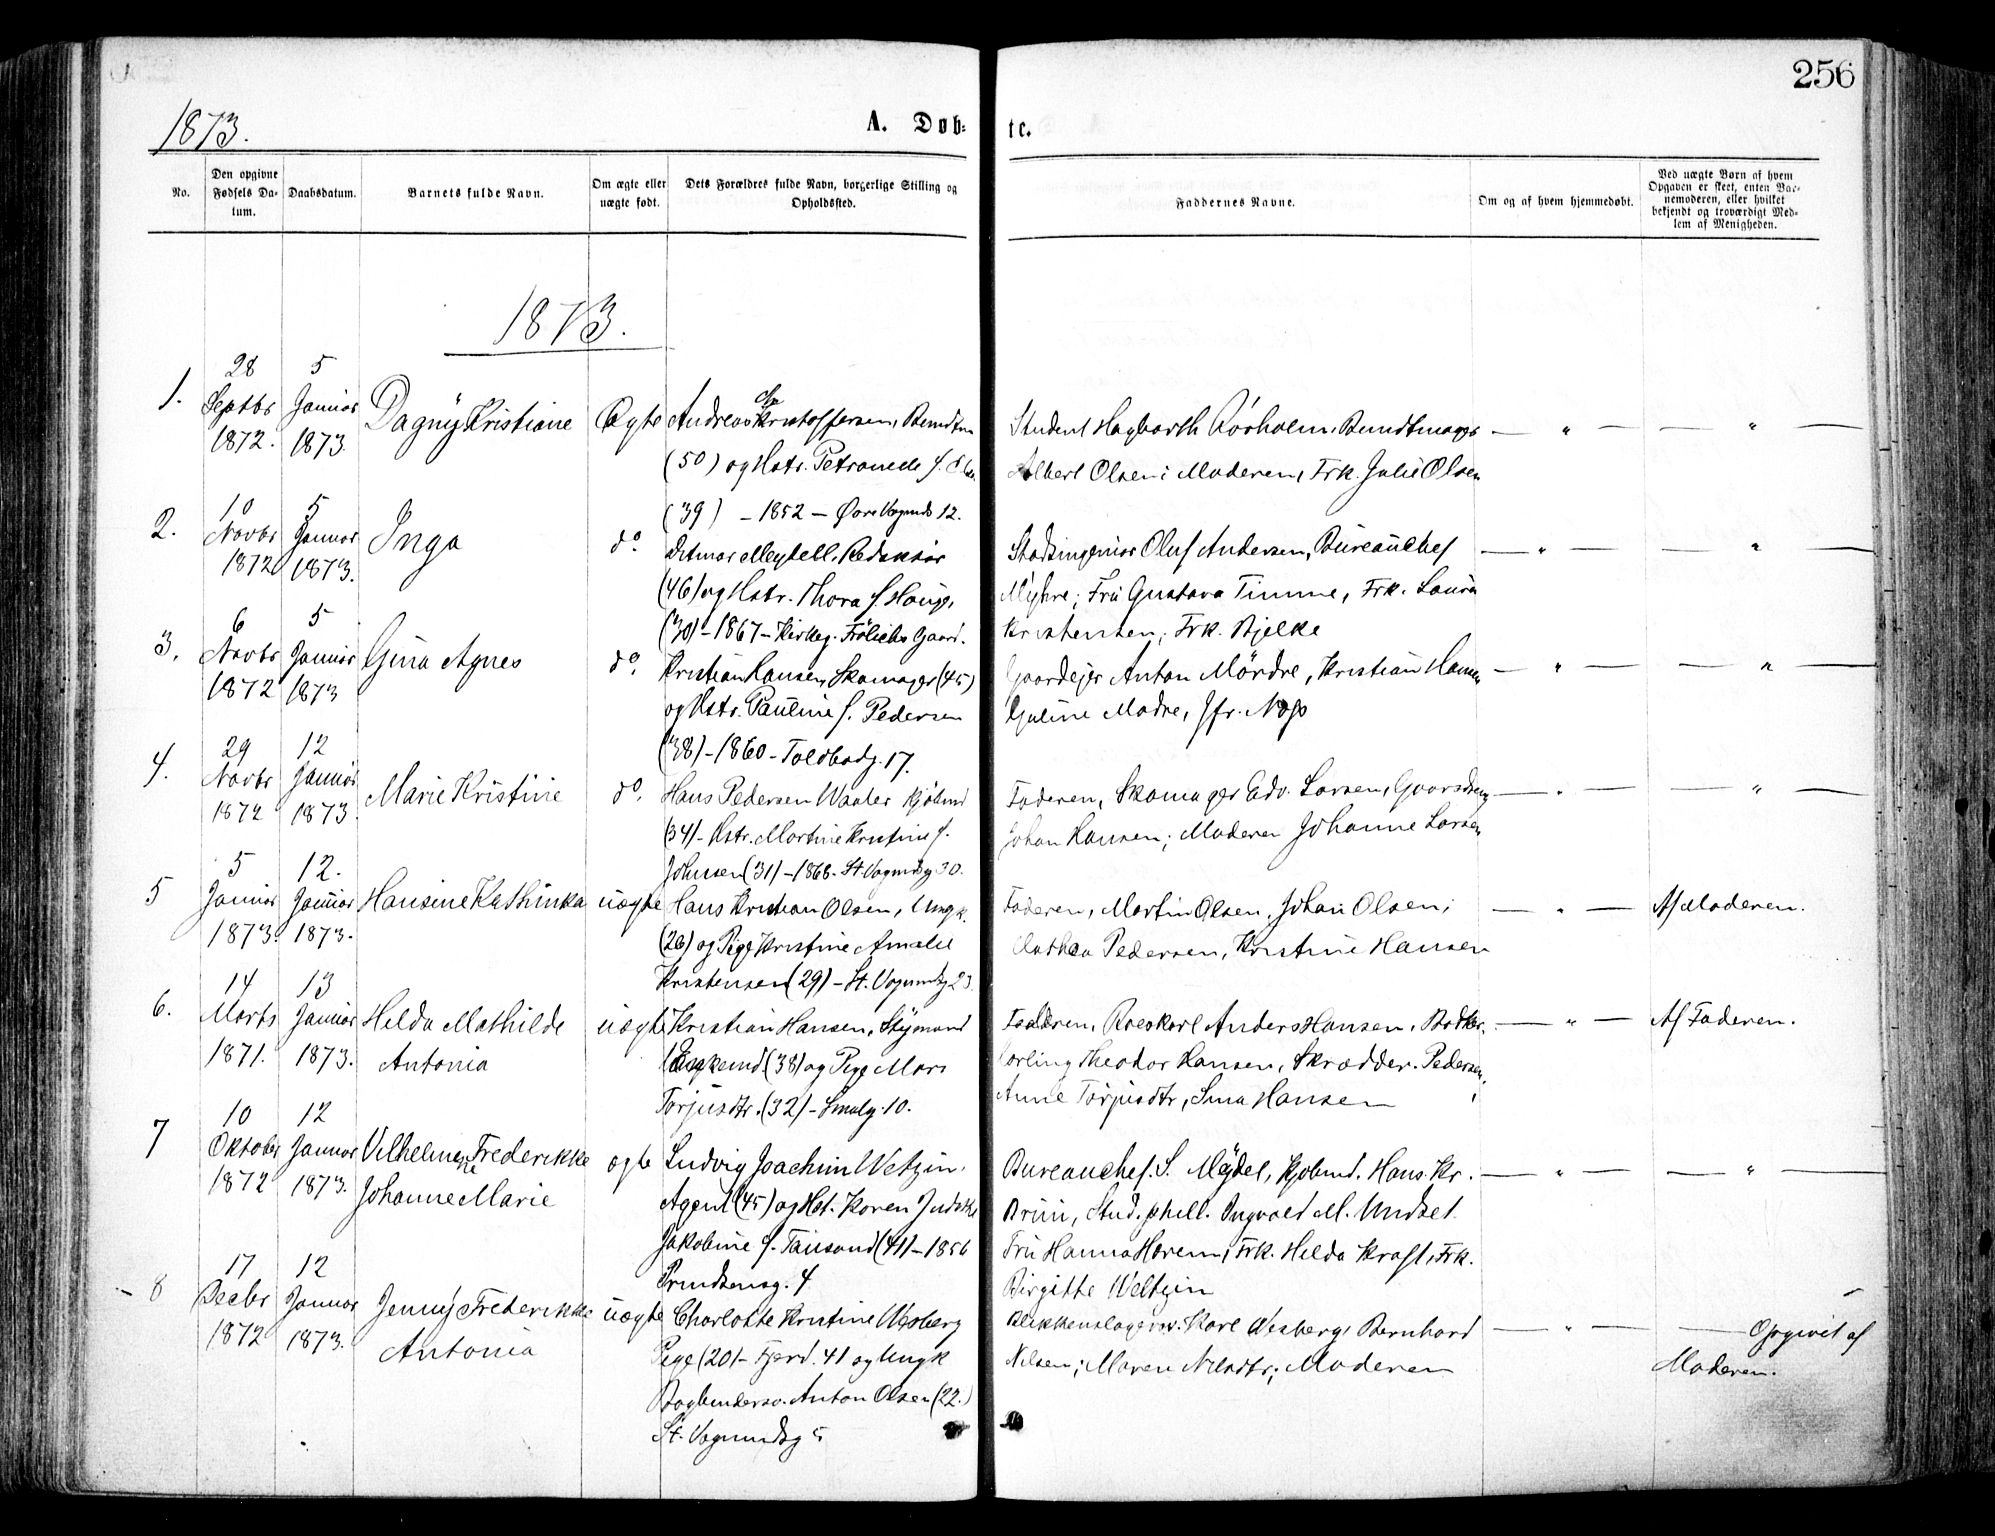 256
1873.
A. Døb-
te.
No.
Den opgivne
Fødsels Da-
tum.
Daabsdatum.
Barnets fulde Navn.
Om ægte eller
uægte født.
Dets Forældres fulde Navn, borgerlige Stilling og
Opholdssted.
Faddernes Navne.
Om og af hvem hjemmedøbt.
Ved uægte Børn af hvem
Opgaven er skeet, enten Bar-
nemoderen, eller hvilket
bekjendt og troværdigt Med-
lem af Menigheden.
1873.
1.
28
Septbr
1872.
5
Januar
1873.
Dagny Kristiane
Ægte
Andreas Kristoffersen,
(50) og Hstr. Petronede f.
(39) – 1852 –
12.
Student Hagbarth Rørholm,
Albert Olsen; Moderen, Frk. Julie Olsen
— " —
— " —
2.
10
Novbr
1872
5
Januar
1873.
Inga
do.
Ditmar Meydell, Redaktør
(46) og Hstr. Thora f. Hauge
(30) – 1867 – Kirkeg. Frölichs Gaard.
Stadsingeniør Oluf Andersen, Bureauchef
Myhre; Fru Gustava Timme, Frk. Laura
Kristensen; Frk. Bjelke
— " —
"
3.
6
Novbr
1872
5
Januar
1873
Gina Agnes
do.
Kristian Hansen, Skomager (45)
og Hstr. Pauline f. Pedersen
(38) – 1860 – Toldbodg. 17.
Gaardejer Anton Mördre, Kristian Hansen
Guline Modre, Jfr.
— " —
— " —
4.
29
Novbr
1872
12
Januar
1873.
Marie Kristine
do.
Hans Pedersen Waaler Kjøbmd
(34) – Hstr. Martine Kristine f.
Johnsen (31) – 1868 – St. Vognmdsg 30.
Faderen, Skomager Edv. Larsen, Gaardsdreng
Johan Hansen; Moderen Johanne Larsen
— " —
"
5
5
Januar
1873.
12.
Januar
1873.
Hansine Kathinka
uægte
Hans Kristian Olsen, Ungk.
(26) og Pige Kristine Amalie
Kristensen (29) – St. Vognmdsg 23.
Faderen, Martin Olsen, Johan Olsen;
Anthea Pedersen, Kristine Hansen
— " —
Af Moderen.
6.
14
Marts
1871.
13
Januar
1873.
Hilda Mathilde
Antonia
uægte
Kristian Hansen, Styrmand
Enkemd (38) og Pige Mari
Torjusdtr. (32) – Smalg. 10.
Faderen, Roeskarl Anders Hansen, Bødker-
lærling Theodor Hansen, Skrædder. Pedersen;
Anne Torjusdtr, Sina Hansen
— " —
Af Faderen.
7
10
Oktober
1872
12
Januar
1873.
Vilhelmine Frederikke
Johanne Marie
ægte
Ludvig Joachim Weltzin,
Agent (45) og Hst. Karen
Jakobine f. Tausand (41) – 1856
Prindsensg. 4
Bureauchef. S. Mejdel, Kjøbmd. Hans Kr.
Bruun, Stud. phill. Ingvald M. Undset
Fru Hanna Horem, Frk. Hilda Kraft, Frk.
Birgitte Weltzin
— " —
— " —
8
17
Decbr
1872
12
Januar
1873.
Jenny Frederikke
Antonia
uægte
Charlotte Kristine Wesberg
Pige (20) – Fjerd. 41 og Ungk
Bogbindersv. Anton Olsen (22.)
St. Vognmdsg 5
Blikkenslagersv. Karl Wesberg, Bernhard
Nilsen; Maren Nilsdtr; Moderen
— " —
— Opgivet af
Moderen.